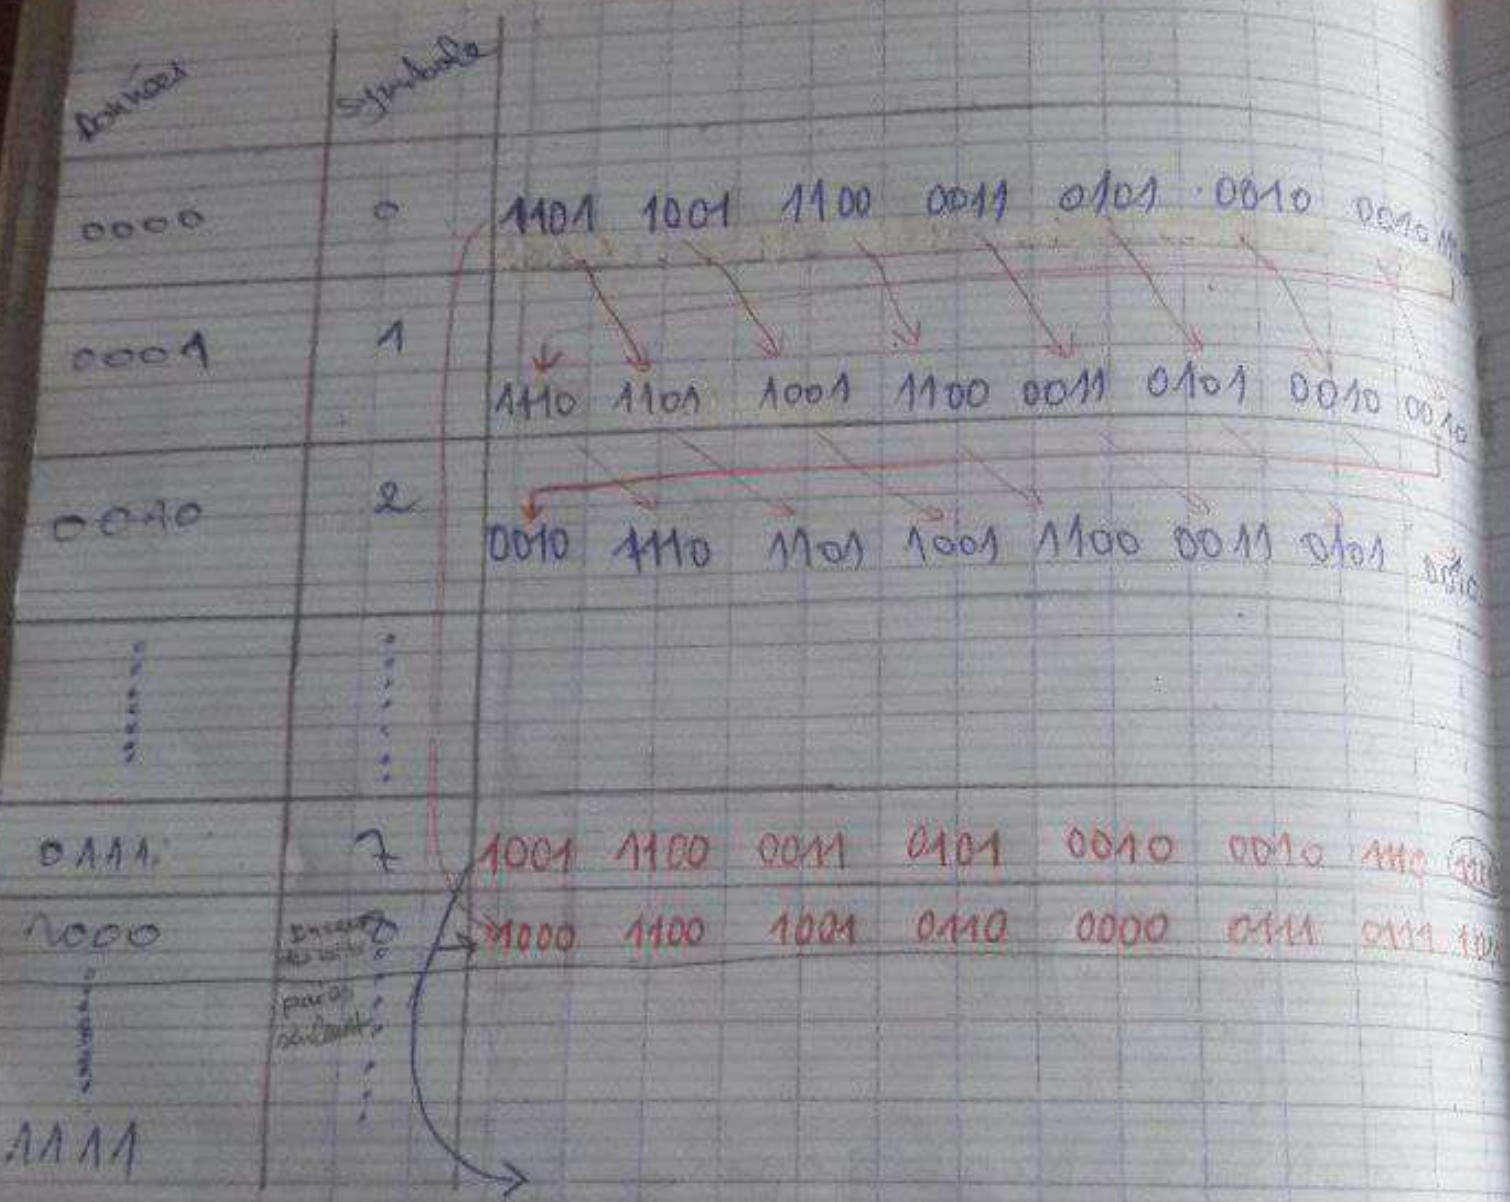 Données symbole
0000 0 1101 1001 1100 0011 0101 0010 0010
0001 1 1110 1101 1001 1100 0011 0101 0010 0010
0010 2 0010 1110 1101 1001 1100 0011 0101
0111 7 1001 1100 0011 0101 0010 0010 1110
1000 8 1000 1100 1001 0110 0000 0111 0111
1111